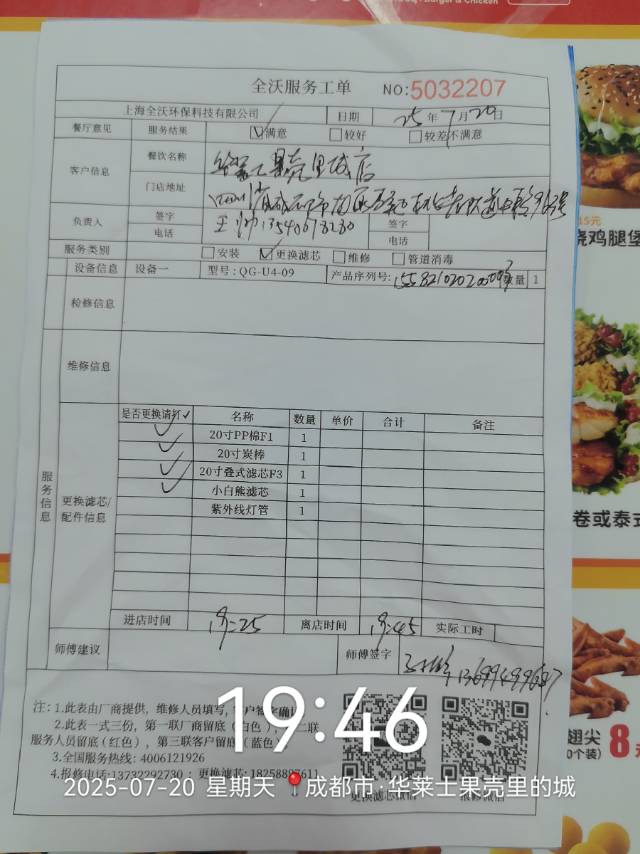 全沃服务工单 NO:5032207
上海全沃环保科技有限公司 日期 25年7月20日
餐厅意见 服务结果 ☑满意 □较好 □较差不满意
客户信息 餐饮名称 华莱士果壳里城店
门店地址
负责人 签字 电话 签字 电话
服务类别 □安装 ☑更换滤芯 □维修 □管道消毒
设备信息 设备一 型号:QG-U4-09 产品序列号: 数量 1
检修信息
维修信息
服务信息
更换滤芯/配件信息
是否更换请打✓ 名称 数量 单价 合计 备注
✓ 20寸PP棉F1 1
✓ 20寸炭棒 1
✓ 20寸叠式滤芯F3 1
✓ 小白熊滤芯 1
紫外线灯管 1
进店时间 19:25 离店时间 19:45 实际工时
师傅建议 师傅签字
注:1.此表由厂商提供,维修人员填写,客户签字确认
2.此表一式三份,第一联厂商留底(白色),二联
服务人员留底(红色),第三联客户留底(蓝色)
3.全国服务热线:4006121926
4.报修电话:13732292730;更换滤芯:18258897611
更换滤芯微信 报修微信
19:46
2025-07-20 星期天 成都市·华莱士果壳里的城
烧鸡腿堡
卷或泰式
翅尖
8